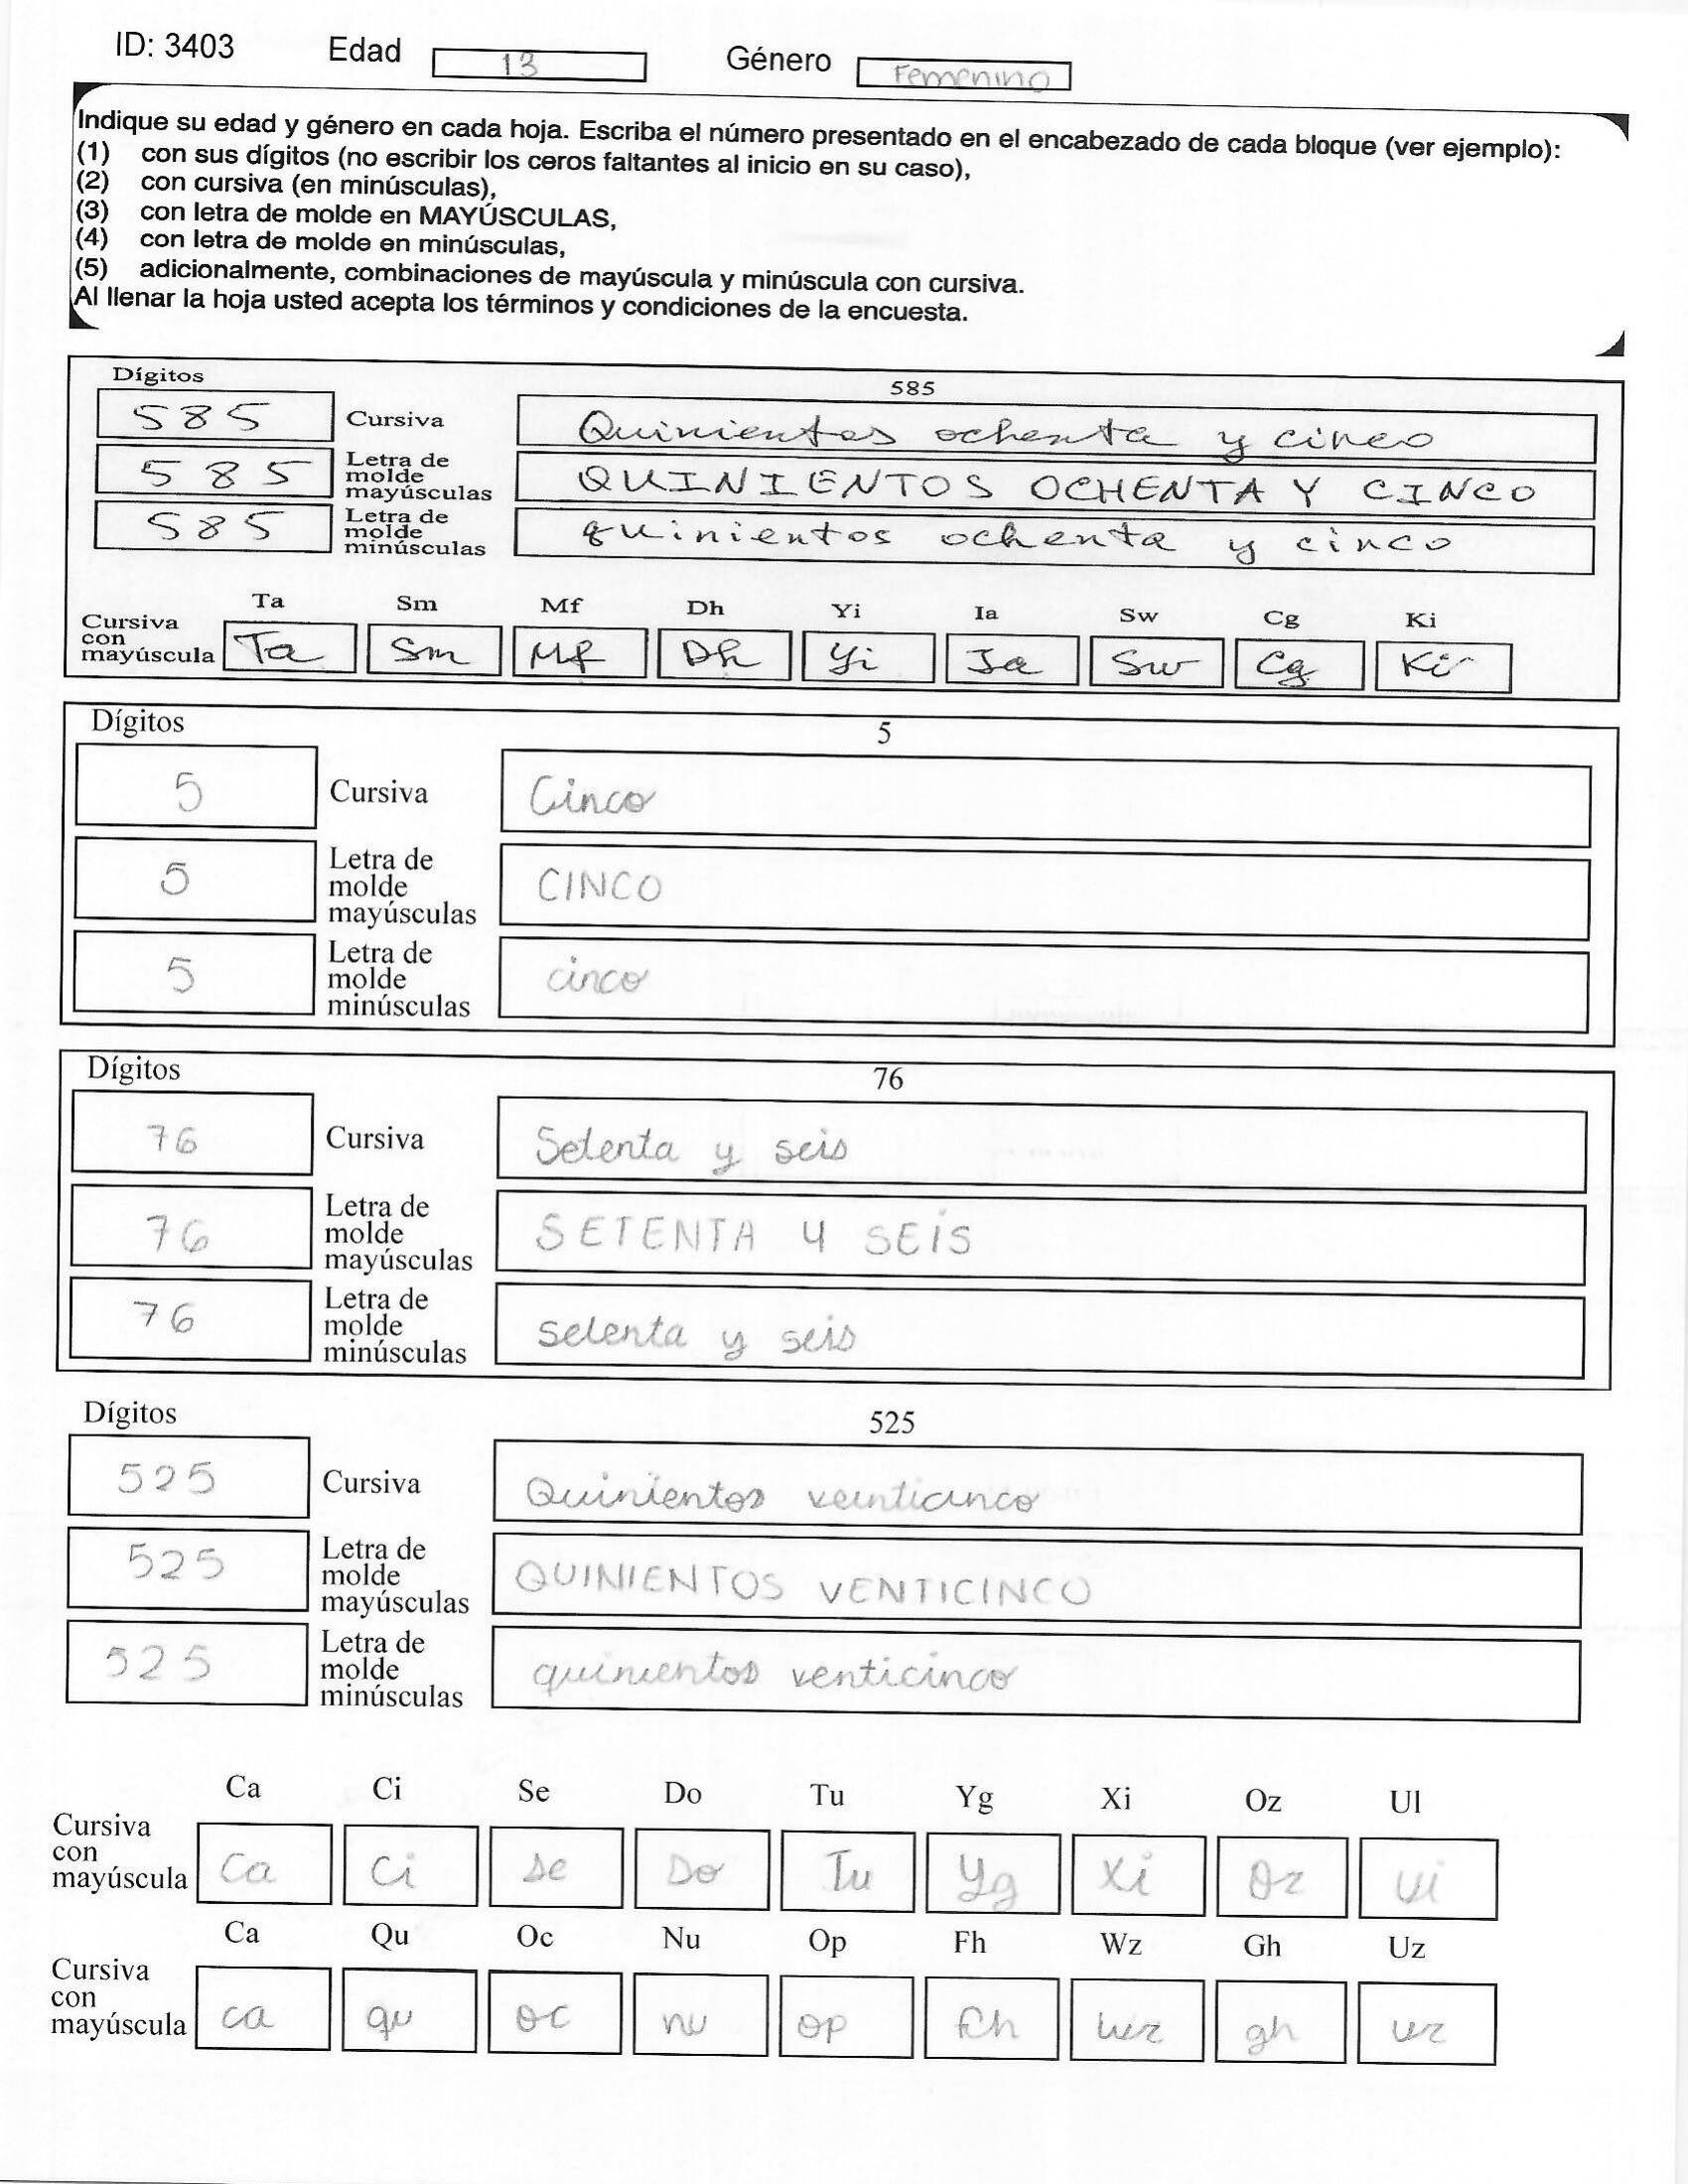 ID: 3403 Edad 13 Género Femenino
Indique su edad y género en cada hoja. Escriba el número presentado en el encabezado de cada bloque (ver ejemplo):
(1) con sus dígitos (no escribir los ceros faltantes al inicio en su caso),
(2) con cursiva (en minúsculas),
(3) con letra de molde en MAYÚSCULAS,
(4) con letra de molde en minúsculas,
(5) adicionalmente, combinaciones de mayúscula y minúscula con cursiva.
Al llenar la hoja usted acepta los términos y condiciones de la encuesta.
Dígitos 585
585 Cursiva Quinientos ochenta y cinco
585 Letra de molde mayúsculas QUINIENTOS OCHENTA Y CINCO
585 Letra de molde minúsculas quinientos ochenta y cinco
Ta Sm Mf Dh Yi Ia Sw Cg Ki
Cursiva con mayúscula Ta Sm Mf Dh Yi Ia Sw Cg Ki
Dígitos 5
5 Cursiva Cinco
5 Letra de molde mayúsculas CINCO
5 Letra de molde minúsculas cinco
Dígitos 76
76 Cursiva Setenta y seis
76 Letra de molde mayúsculas SETENTA Y SEIS
76 Letra de molde minúsculas setenta y seis
Dígitos 525
525 Cursiva Quinientos veinticinco
525 Letra de molde mayúsculas QUINIENTOS VENTICINCO
525 Letra de molde minúsculas quinientos venticinco
Ca Ci Se Do Tu Yg Xi Oz Ul
Cursiva con mayúscula Ca Ci Se Do Tu Yg Xi Oz Ui
Ca Qu Oc Nu Op Fh Wz Gh Uz
Cursiva con mayúscula ca qu oc nu op fh wz gh uz